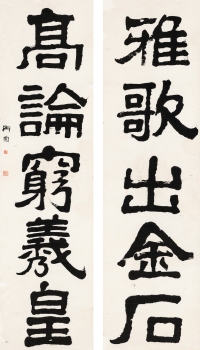 雅歌出金石
高論窮羲皇